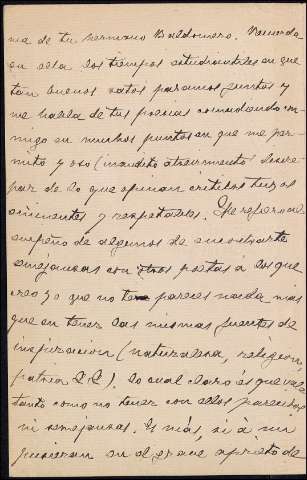 ma de tu hermano Baldomero. Recuerda
en ella los tiempos estudiantiles en que
tan buenos ratos pasamos juntos y
me habla de tus poesias coincidiendo con-
migo en muchos puntos en que me per-
mito y oso (inaudito atrevimiento) discre-
par de lo que opinan criticos tuyos
eminentes y respetables. Me refiero al
empeño de algunos de encontrarte
semejanzas con otros poetas á los que
creo yo que no te pareces nada mas
que en tener las mismas fuentes de
inspiracion (naturaleza, religion,
patria &.&). lo cual claro es que vale
tanto como no tener con ellos parecidos
ni semejanzas. Es más, si á mi
pusieran en el grave aprieto de